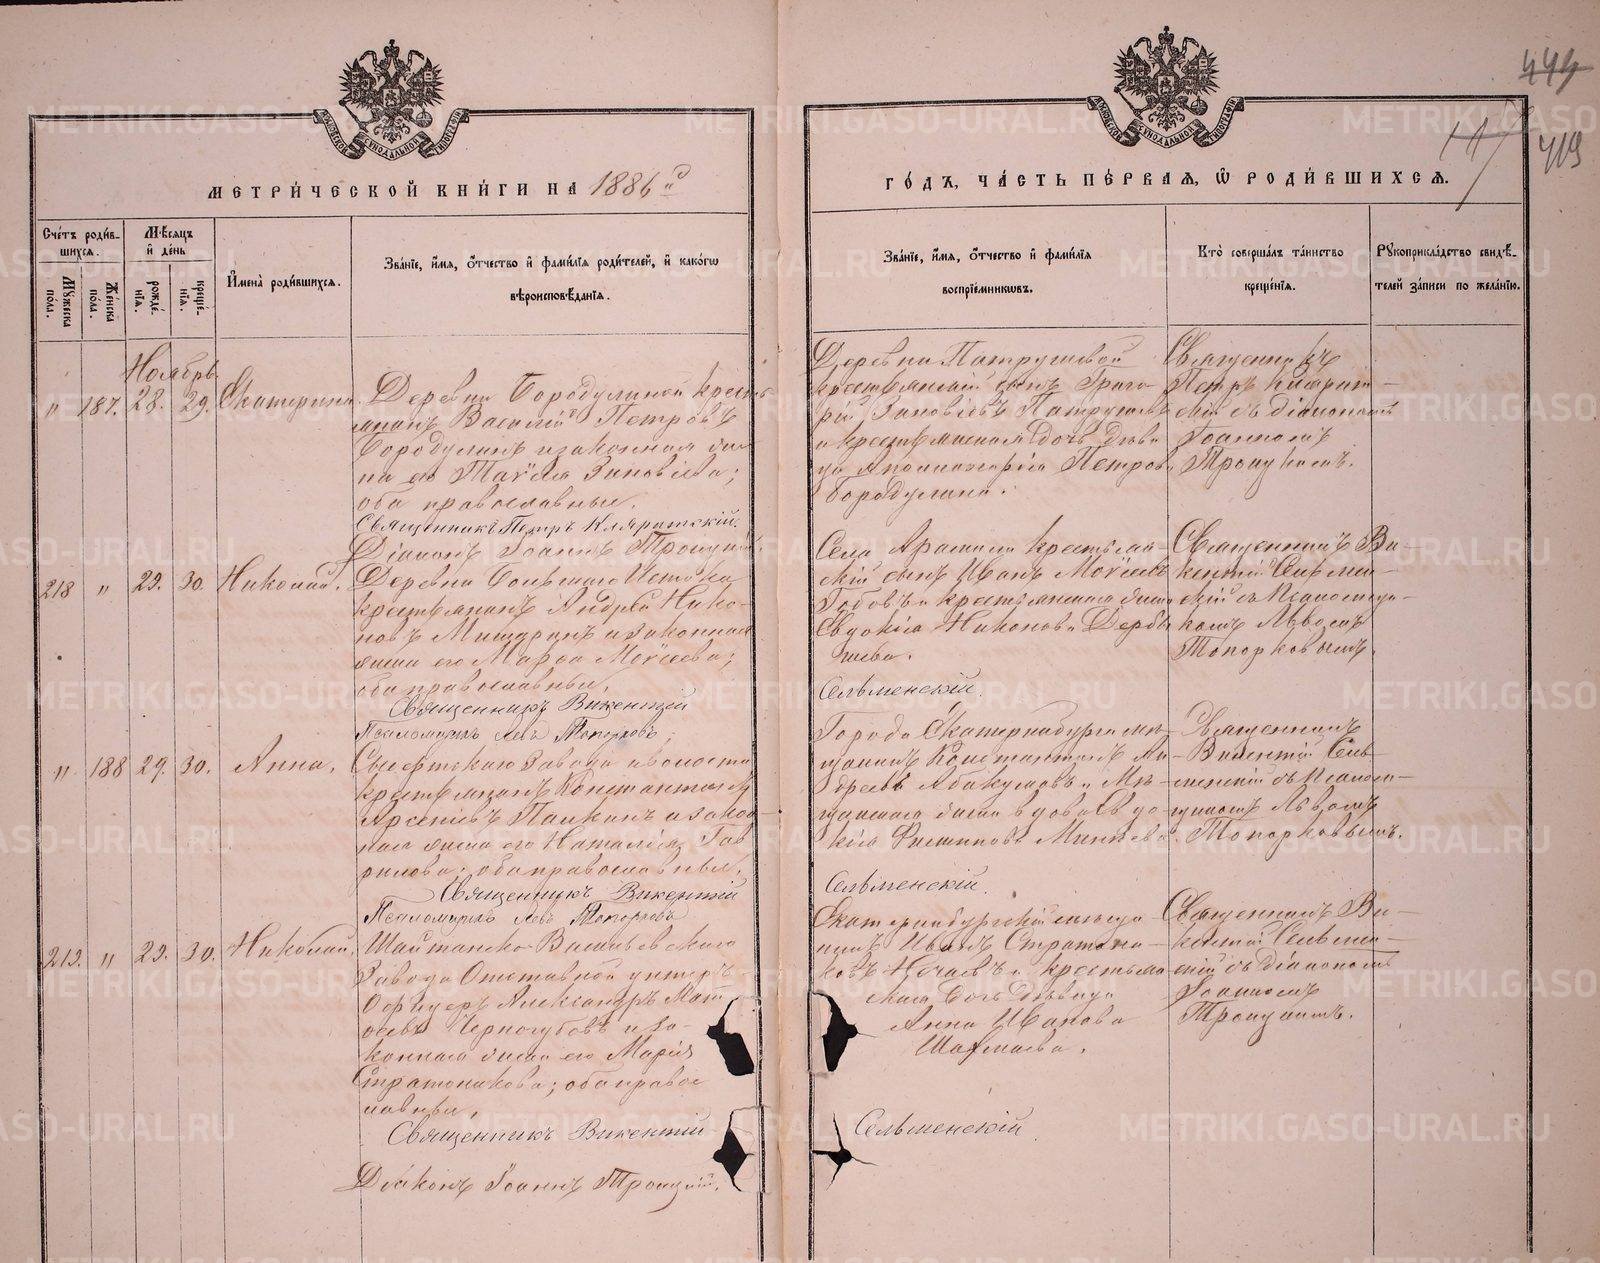 449
117
419
МЕТРИ́ЧЕСКОЙ КНИ́ГИ НА 1886й
ГО́ДЪ, ЧА́СТЬ ПЕ́РВАЯ, Ѿ РОДИ́ВШИХСЯ.
Сче́тъ роди́в-
шихся.
Мꙋжеска пола.
Же́нска пола.
Мѣсяцъ
и҆ де́нь
рожде́нїя.
креще́нїя.
И҆мена̀ роди́вшихся.
Зва́нїе, и҆́мя, ѻ҆́тчество и҆ фами́лїя роди́телей, и҆ како́гѡ
вѣроисповѣ́данїя.
Зва́нїе, и҆́мя, ѻ҆́тчество и҆ фами́лїя
воспрїе́мникѡвъ.
Кто̀ соверша́лъ та́инство
креще́нїя.
Рꙋкоприкла́дство свидѣ́-
телей за́писи по жела́нїю.
Ноябрь.
" 187. 28. 29. Екатерина.
Деревни Бородулиной кресть
янинъ Василій Петровъ
Бородулинъ и законная же
на его Таисія Зиновіева;
оба православные.
Священникъ Петръ
Діаконъ Іоаннъ Троицкій.
Деревни Патрушевой
крестьянскій сынъ Григо
рій Зиновіевъ Патрушевъ
и крестьянская дочь дѣви
ца Петрова
Бородулина.
Священникъ
Петръ
скій съ діакономъ
Іоанномъ
Троицкимъ.
218 " 29. 30. Николай.
Деревни Большаго Истока
крестьянинъ Андрей Нико-
новъ и законная
жена его Марѳа Моисеева;
оба православные.
Священникъ Викентій
Псаломщикъ Левъ Топорковъ;
Села Арамили крестьян-
скій сынъ Иванъ Моисеевъ
и крестьянская жена
Евдокія Никонова Дербы
шева.
Сельменскій.
Священникъ Ви-
кентій Сельмен-
скій съ Псаломщи-
комъ Львомъ
Топорковымъ.
" 188 29. 30. Анна.
Сысертскаго Завода и волости
крестьянинъ Константинъ
Арсеніевъ и закон-
ная жена его Наталія Гав
рилова; оба православные.
Священникъ Викентій
Псаломщикъ Левъ Топорковъ
Города Екатеринбурга мѣ-
щанинъ Константинъ Ан-
дреевъ Абакумовъ и Мѣ-
щанская жена вдова Евдо
кія Филиппова
Сельменскій.
Священникъ
Викентій Сель-
менскій съ Псалом-
щикомъ Львомъ
Топорковымъ.
219. " 29. 30. Николай.
Шайтанско-Васильевскаго
Завода Отставной унтеръ-
Офицеръ Александръ Мат
ѳеевъ Черногубовъ и за-
конная жена его Марія
Стратоникова; оба правос
лавные.
Священникъ Викентій
Діаконъ Іоаннъ Троицкій.
Екатеринбургскій
Иванъ Стратони-
ковъ Нечаевъ и крестьян
ская дочь дѣвица
Анна Иванова
Сельменскій
Священникъ Ви-
кентій Сельмен-
скій съ діакономъ
Іоанномъ
Троицкимъ.
METRIKI.GASO-URAL.RU